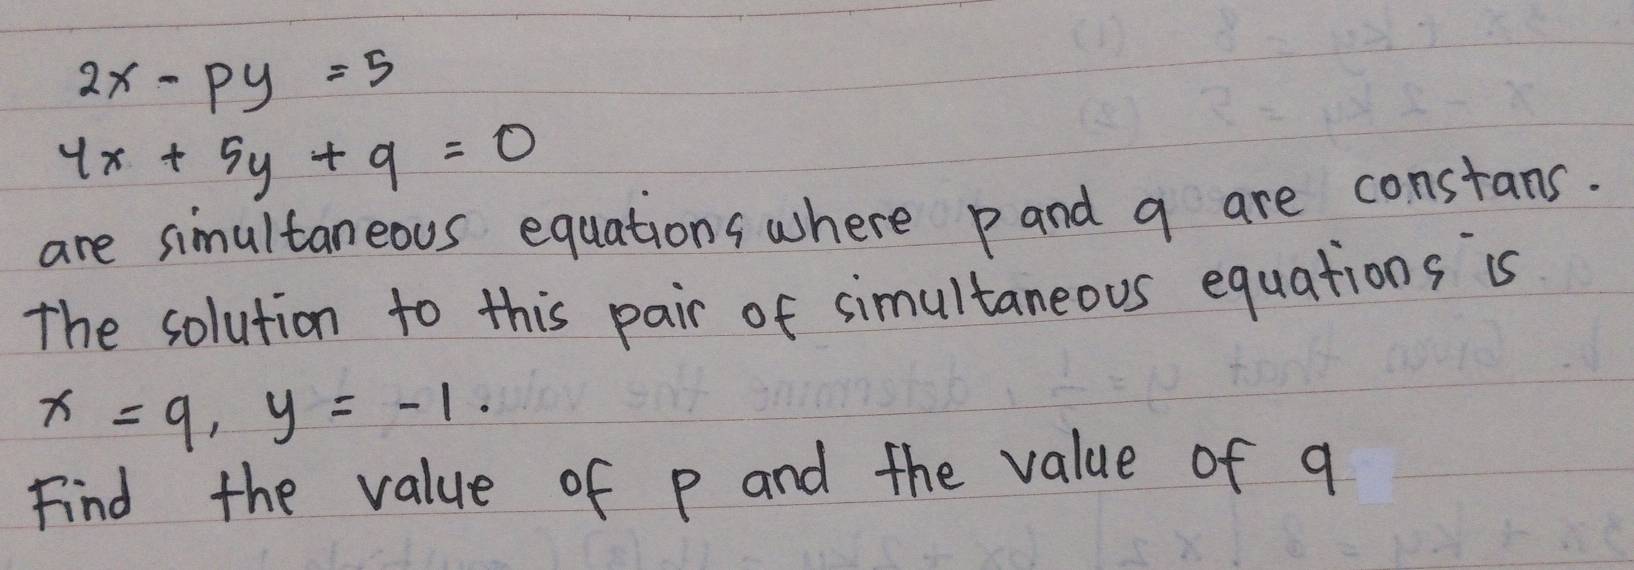 2x - py = 5
4x + 5y + q = 0
are simultaneous equations where p and q are constans.
The solution to this pair of simultaneous equations is
x = q, y = -1.
Find the value of p and the value of q